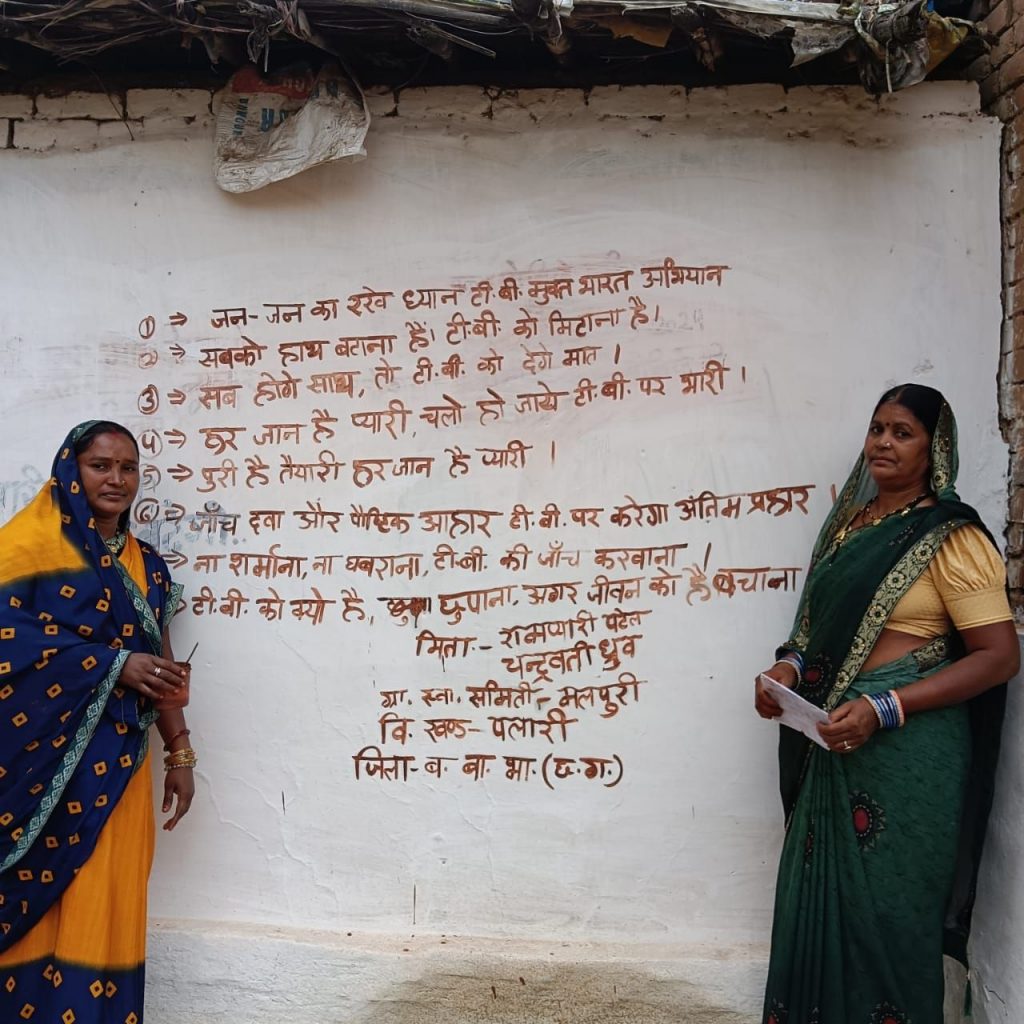 ① ⇒ जन-जन का रखे ध्यान टी.बी. मुक्त भारत अभियान
② ⇒ सबको हाथ बटाना है। टी.बी. को मिटाना है।
③ ⇒ सब होगे साथ, तो टी.बी. को देगे मात।
④ ⇒ हर जान है प्यारी, चलो हो जाये टी.बी. पर भारी।
⑤ ⇒ पुरी है तैयारी हर जान है प्यारी।
⑥ ⇒ जाँच दवा और पौष्टिक आहार टी.बी. पर करेगा अंतिम प्रहार।
⇒ ना शर्माना, ना घबराना, टी.बी. की जाँच करवाना।
⇒ टी.बी. को क्यो है, छुपाना, अगर जीवन को है बचाना
मिता.- रामप्यारी पटेल
चन्द्रवती ध्रुव
ग्रा. स्वा. समिती - मलपुरी
वि. खण्ड- पलारी
जिला- ब. बा. भा. (छ.ग.)